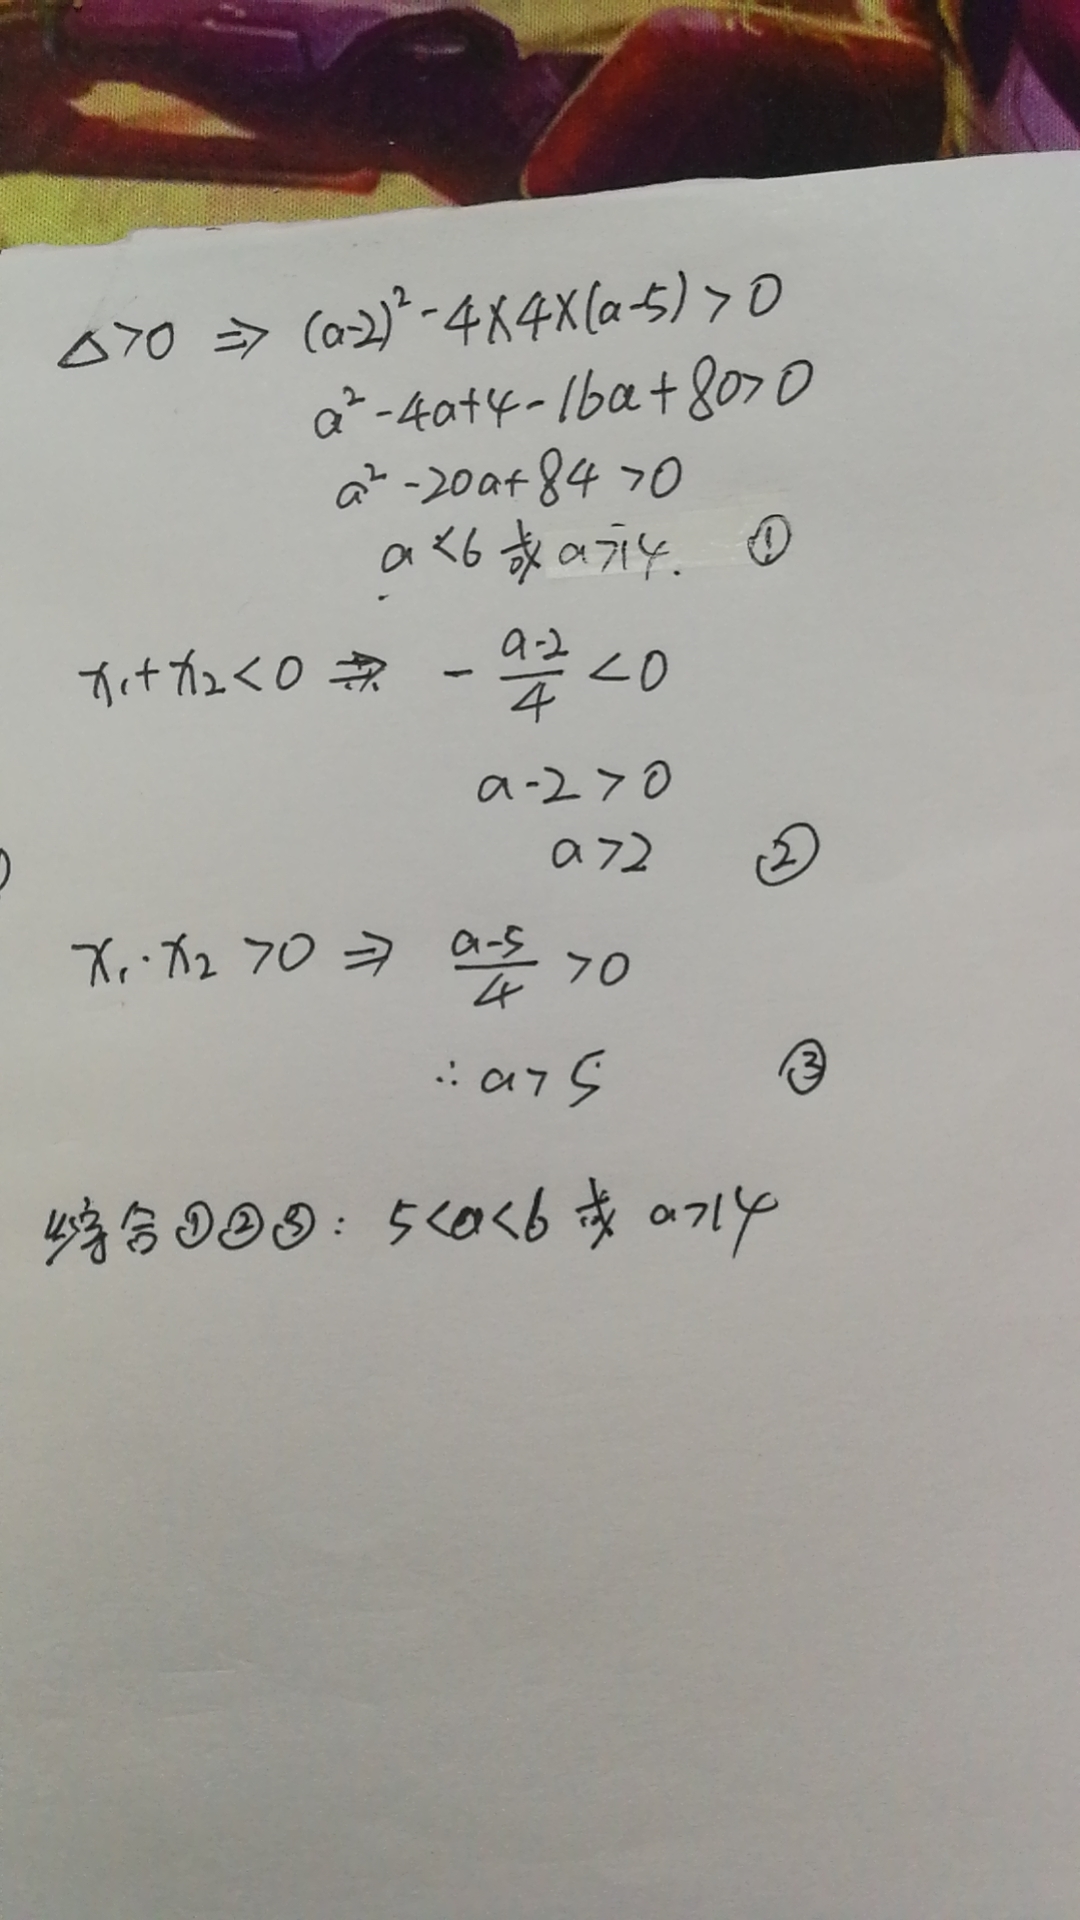 △>0 ⇒ (a-2)²-4×4×(a-5)>0
a²-4a+4-16a+80>0
a²-20a+84>0
a<6 或 a>14. ①
x₁+x₂<0 ⇒ -(a-2)/4<0
a-2>0
a>2 ②
x₁·x₂>0 ⇒ (a-5)/4>0
∴a>5 ③
综合①②③: 5<a<6 或 a>14